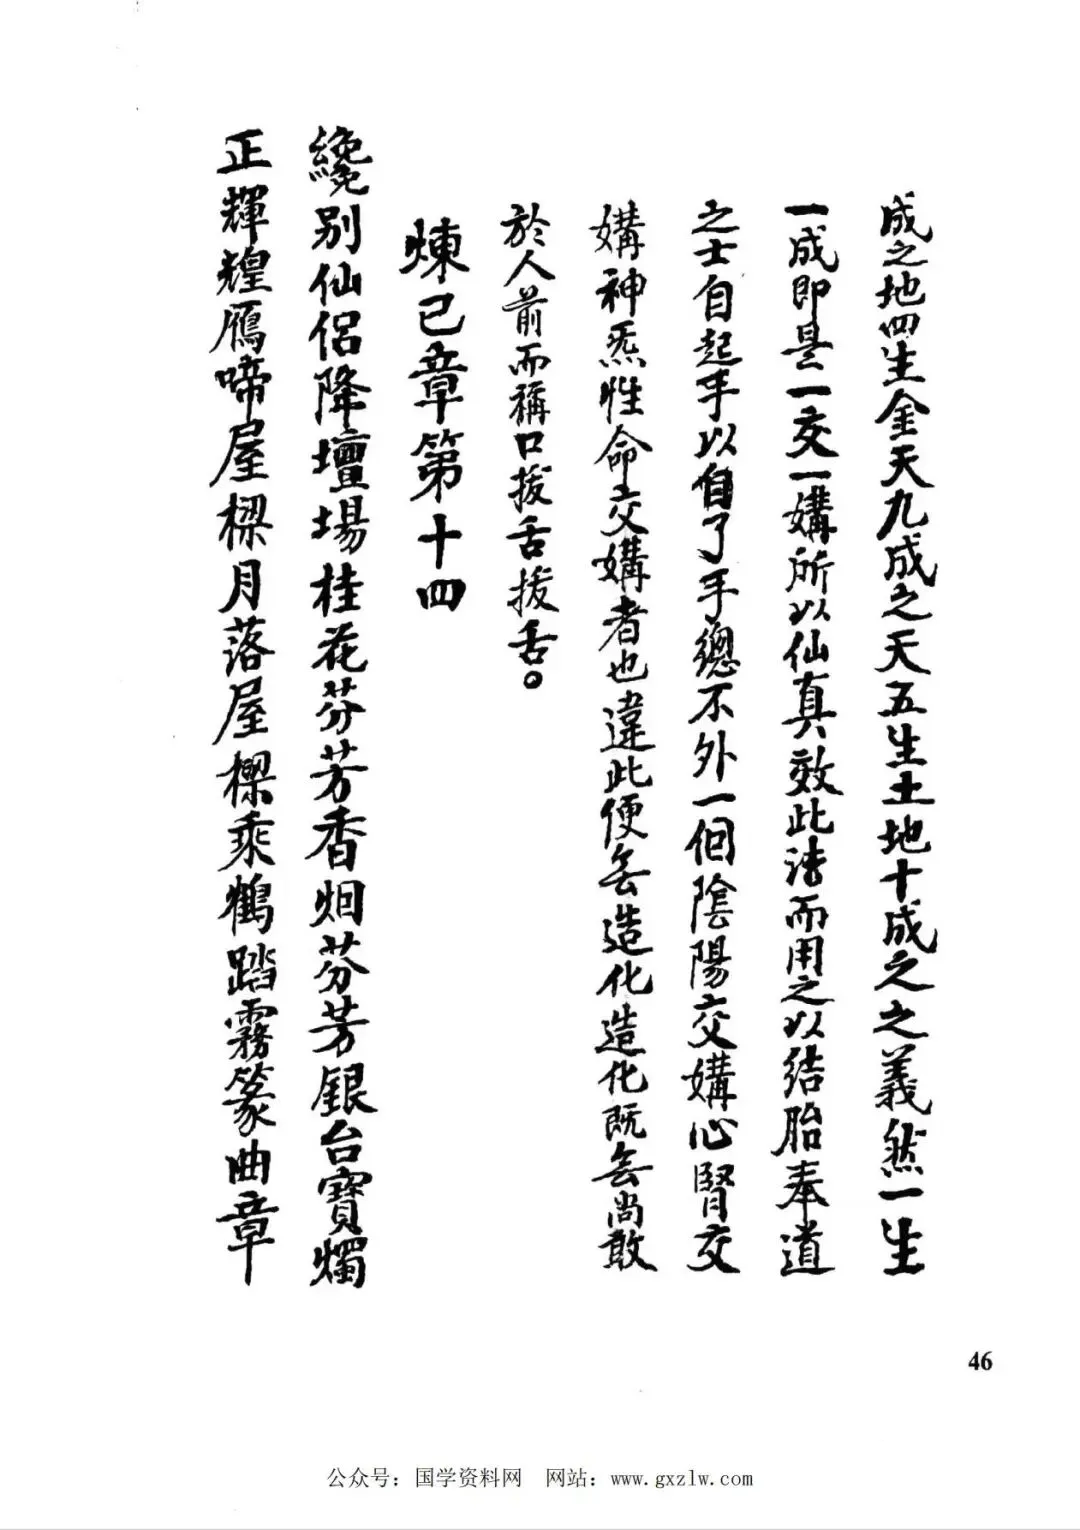 成之地四生金天九成之天五生土地十成之之義然一生
一成即是一交一媾所以仙真效此法而用之以結胎奉道
之士自起手以自了手總不外一個陰陽交媾心腎交
媾神炁性命交媾者也違此便無造化造化既無尚敢
於人前而稱口拔舌拔舌。
煉己章第十四
纔别仙侣降壇場桂花芬芳香烟芬芳銀台寶燭
正輝煌雁啼屋樑月落屋樑乘鶴踏霧篆曲章
46
公众号：国学资料网 网站：www.gxzlw.com